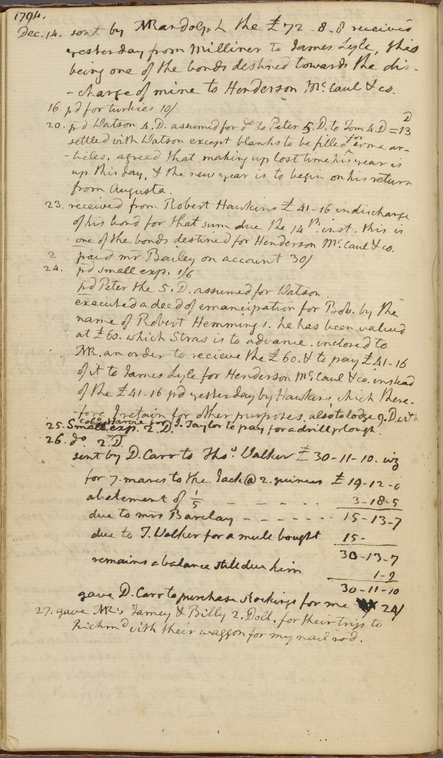 1794.
Dec. 14. sent by MRandolph the £72-8-8 received
yesterday from Milliner to James Lyle, this
being one of the bonds destined towards the dis-
-charge of mine to Henderson McCaul & co.
16. pd for turkies 10/
20. pd Watson 4.D. assumed for do to Peter 5.D. to Tom 4.D = 13 D
settled with Watson except blanks to be filled for some ar-
-ticles, agreed that making up lost time his year is
up this day, & the new year is to begin on his return
from Augusta.
23. received from Robert Hawkins £41-16 in discharge
of his bond for that sum due the 14th inst. this is
one of the bonds destined for Henderson McCaul & co.
paid mr Bailey on account 30/
24. pd small exp. 1/6
pd Peter the 5.D. assumed for Watson
executed a deed of emancipation for Bob. by the
name of Robert Hemmings. he has been valued
at £60. which Stras is to advance. inclosed to
MR. an order to recieve the £60. & to pay £41-16
of it to James Lyle for Henderson McCaul & co. instead
of the £41-16 pd yesterday by Hawkins, which there-
fore I retain for other purposes. also to lodge 9. D. with
Colo. Harvie for J. Taylor to pay for a drill plough.
25. Small exp. 2.D.
26. do 2.D.
sent by D. Carr to Thos. Walker £30-11-10. viz
for 7. mares to the Jack @ 2. guineas £19-12-0
abatement of 1/5 - - - - 3-18-5
due to mrs Barclay - - - - - - 15-13-7
due to T. Walker for a mule bought 15-
30-13-7
remains a balance still due him 1-9
30-11-10
gave D. Carr to purchase stockings for me 24/
27. gave MR's Jamey & Billy 2. Doll. for their trip to
Richmd with their waggon for my nail rod.